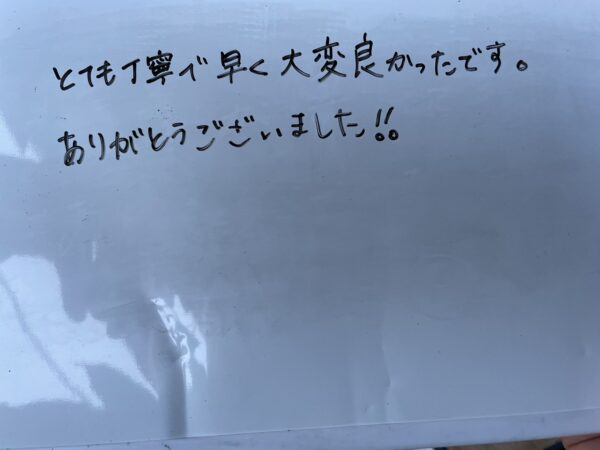 とても丁寧で早く大変良かったです。
ありがとうございました!!